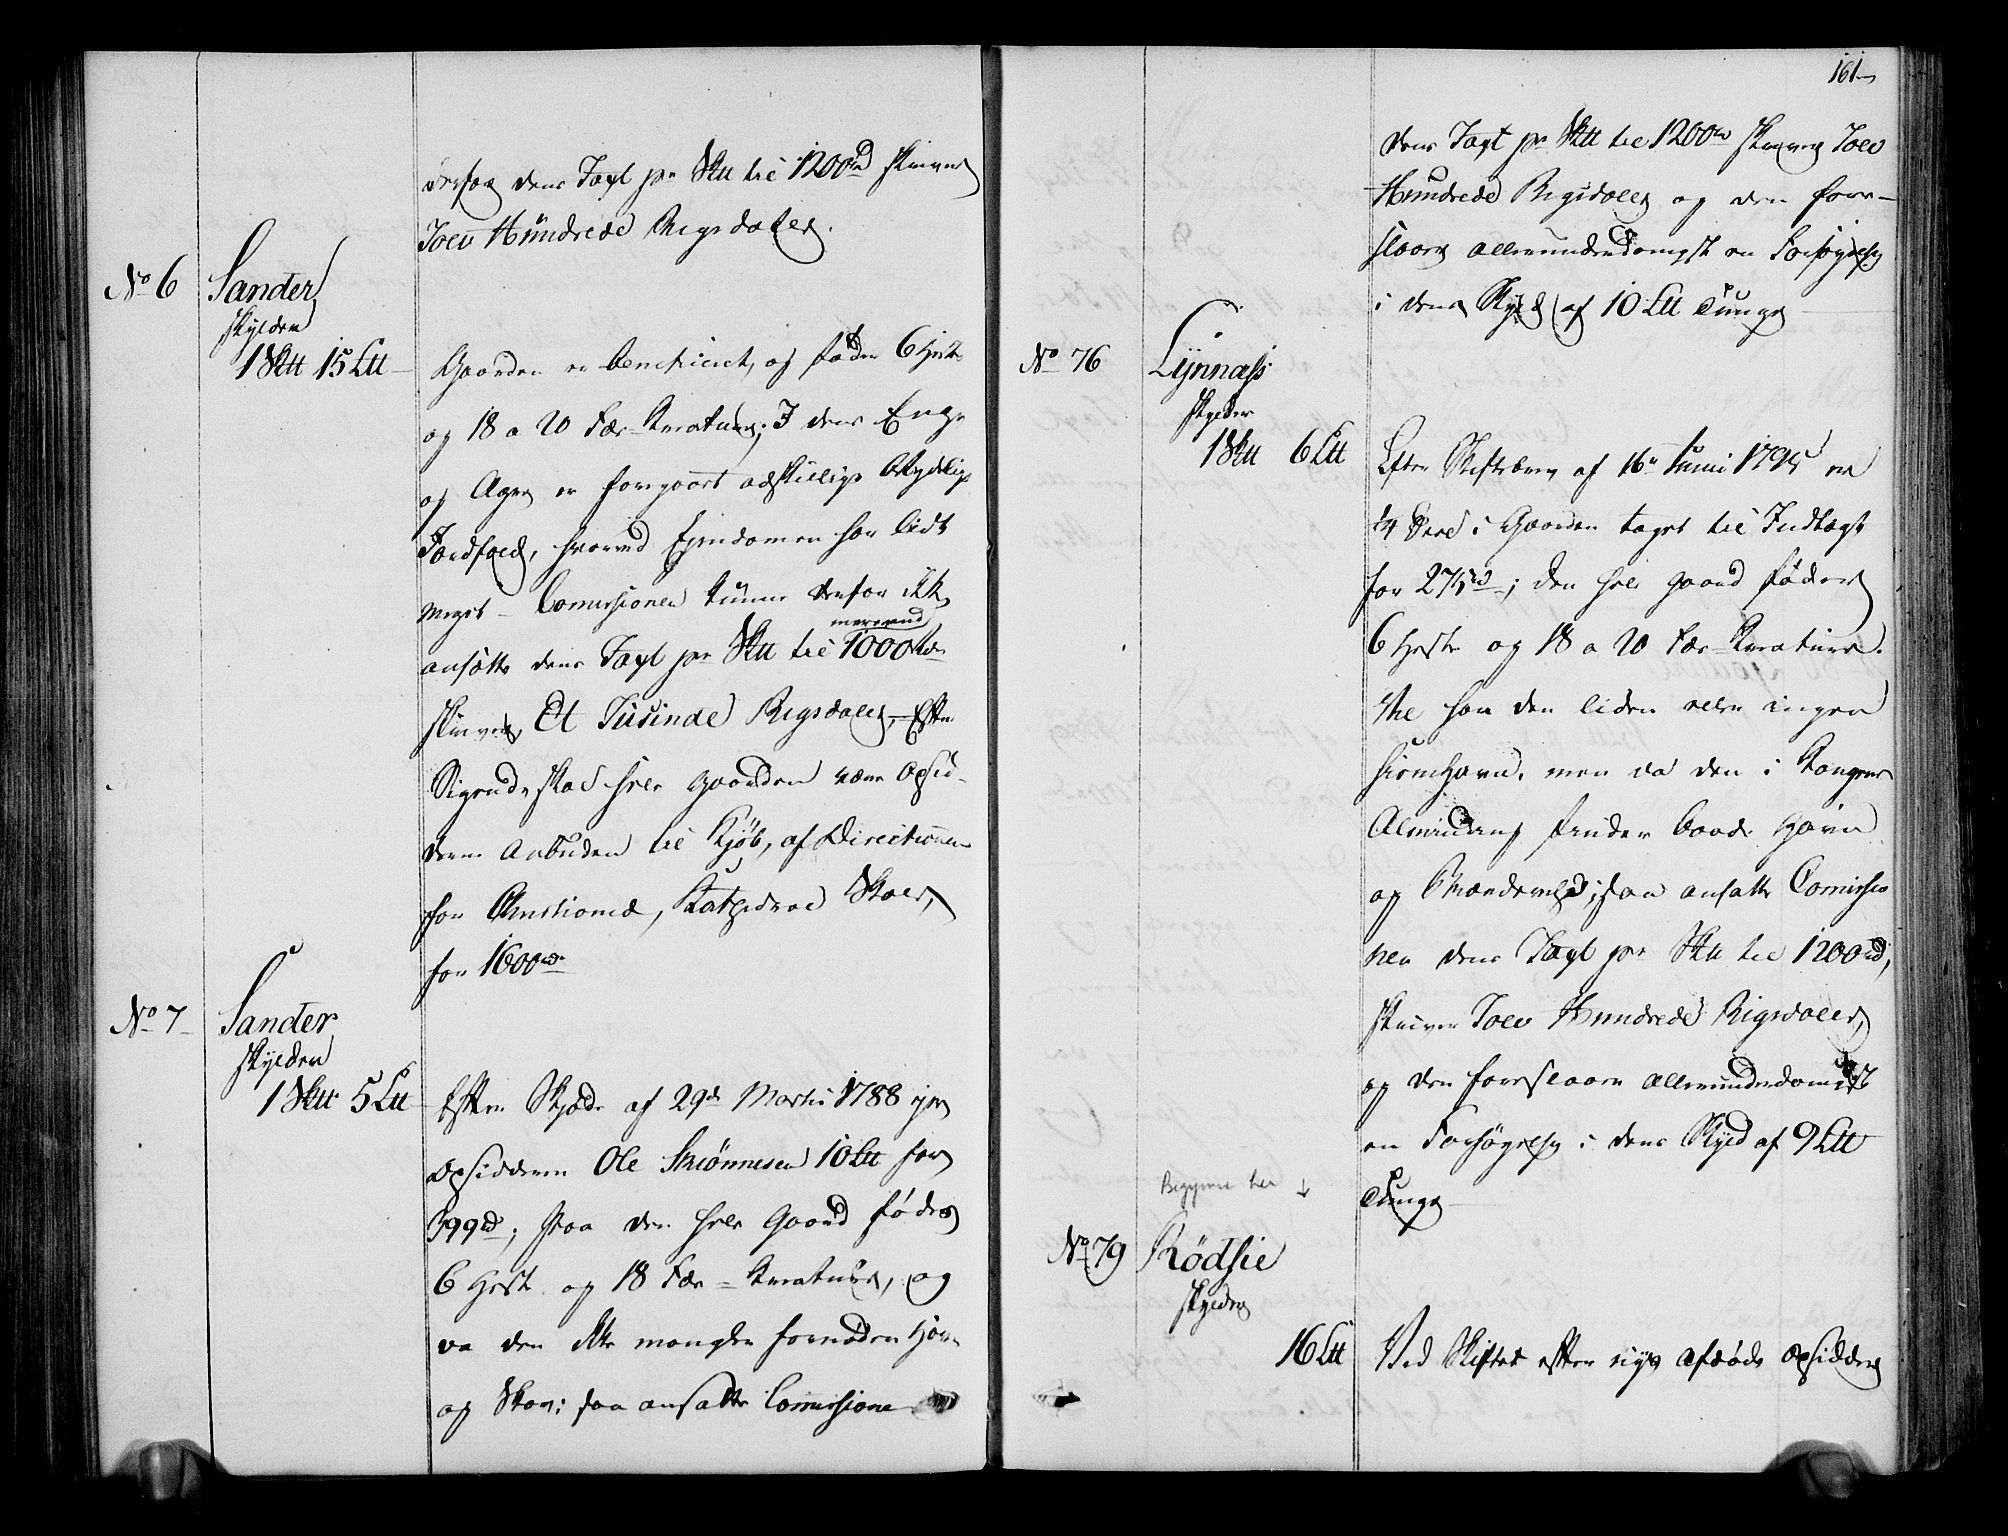 derfor dens Taxt pr Sk℔ til 1200rd skriver
Tolv Hundrede Rigsdaler.
No 6 Sander
skylder
1 Sk℔ 15 L℔
Gaarden er beneficeret, og føder 6 Heste
og 18 a 20 Fær-Kreature; I dens Enge
og Ager er foregaaet adskillige betydelige
Jordfald, hvorved Ejendomen har lidt
meget – Comissionen kunne derfor ikke
mere end
ansætte dens Taxt pr Sk℔ til 1000rdr
skriver Et Tusinde Rigsdaler, – Efter
Sigende skal hele Gaarden være Opsid-
deren anbuden til Kjøb, af Directionen
for Christiania Kathedral Skole,
for 1600rdr
No 7 Sander
skylder
1 Sk℔ 5 L℔
Efter Skjøde af 29de Martii 1788 gav
Opsidderen Ole Skiønnesen 10 L℔ for
399rd; paa den hele Gaard fødes
6 Heste og 18 Fær-Kreature, og
da den ikke mangler fornøden Havn
og Skov; saa ansatte Comissionen
161
dens Taxt pr Sk℔ til 1200rd skriver Tolv
Hundrede Rigsdaler og den fore-
slaaer allerunderdanigst en Forhøyelse
i dens Skyld af 10 L℔ Tunge
No 76 Lynnæss
skylder
1 Sk℔ 6 L℔
Efter Skiftebrev af 16de Junii 1795 er
1/4 Deel i Gaarden taget til Indtægt
for 275rd; den hele Gaard føder
6 Heste og 18 a 20 Fær-Kreature.
Vel har den liden eller ingen
Hiemhavn, men da den i Kongens
Alminding finder baade Havn
og Brændeved; saa ansatte Comissio
nen dens Taxt pr Sk℔ til 1200rd,
skriver Tolv Hundrede Rigsdaler,
og den foreslaaer allerunderdanigst
en Forhøyelse i dens Skyld af 9 L℔
Tunge –
Begynne her ↓
No 79 Rødsie
skylder
16 L℔
Ved Skiftet efter nyes afdøde Opsidder